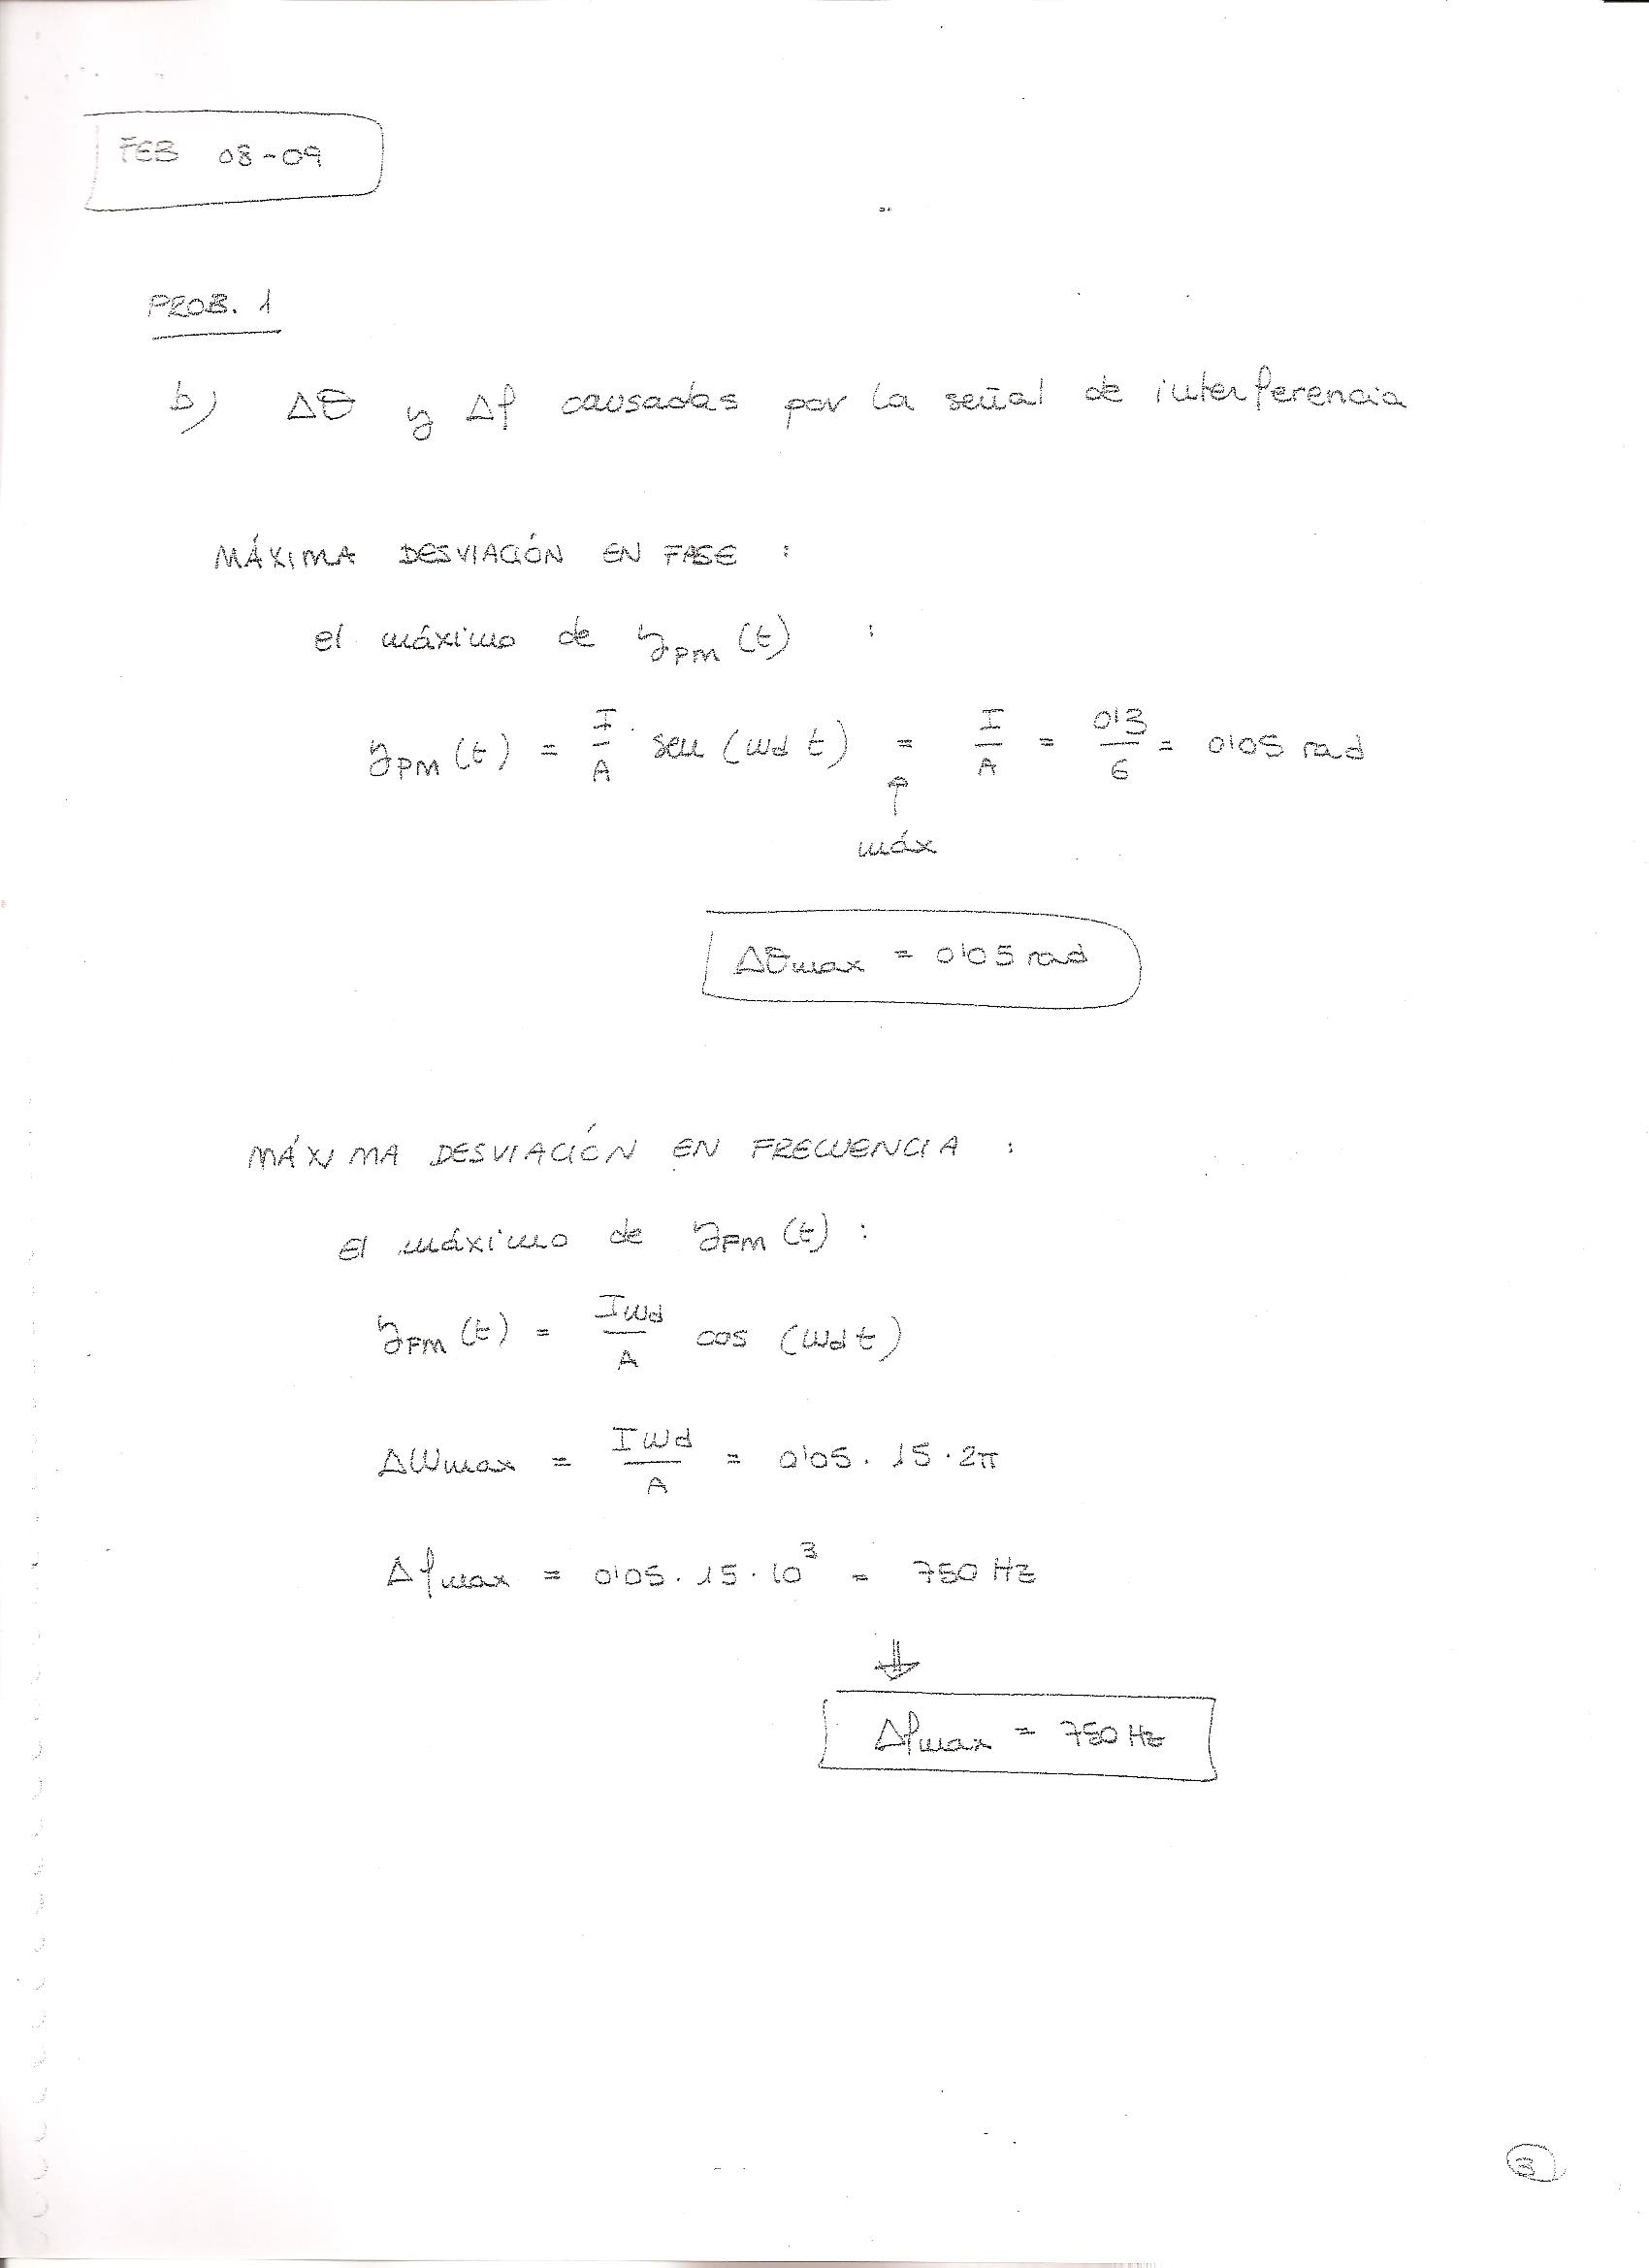 FEB 08-09
PROB. 1
b) Δθ y Δf causadas por la señal de interferencia
MÁXIMA DESVIACIÓN EN FASE :
el máximo de y_PM (t) :
y_PM (t) = I/A · sen (ωd t) = I/A = 0'3/6 = 0'05 rad
↑
máx
Δθmax = 0'05 rad
MÁXIMA DESVIACIÓN EN FRECUENCIA :
El máximo de y_FM (t) :
y_FM (t) = Iωd/A cos (ωd t)
Δωmax = Iωd/A = 0'05 · 15 · 2π
Δfmax = 0'05 · 15 · 10³ = 750 Hz
⇓
Δfmax = 750 Hz
3